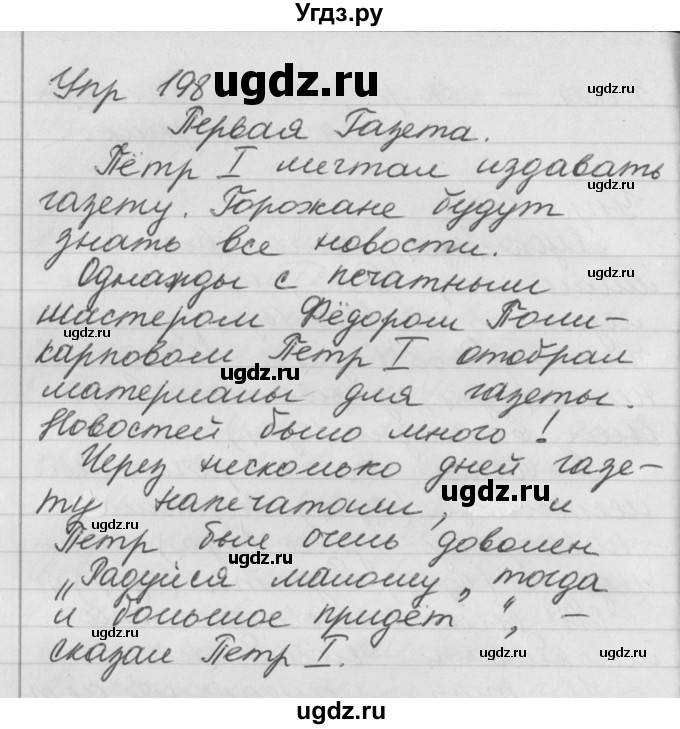 Угдз.ру
Упр 198 ugdz.ru
ugdz.ru
Первая Газета.
ugdz.ru
Пётр I мечтал издавать
ugdz.ru
газету. Горожане будут
знать все новости.
ugdz.ru
Однажды с печатным
мастером Фёдором Поли-
ugdz.ru
карповом Петр I отобрал
ugdz.ru
материалы для газеты.
Новостей было много!
Через несколько дней газе-
ту напечатали, и
ugdz.ru
ugdz.ru
Петр был очень доволен
ugdz.ru
„Радуйся малому, тогда
и большое придёт“, –
ugdz.ru
сказал Петр I.
ugdz.ru
ugdz.ru
ugdz.ru